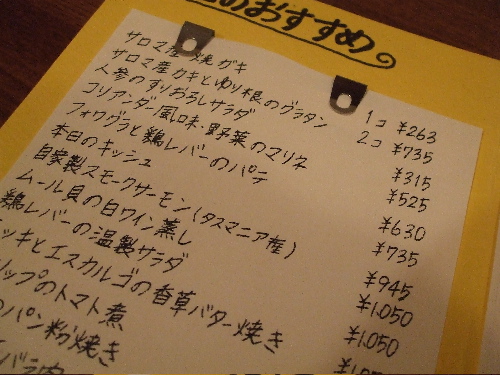 のおすすめ
サロマ産 焼ガキ 1コ ¥263
サロマ産カキとゆり根のグラタン 2コ ¥735
人参のすりおろしサラダ ¥315
コリアンダー風味・野菜のマリネ ¥525
フォワグラと鶏レバーのパテ ¥630
本日のキッシュ ¥735
自家製スモークサーモン(タスマニア産) ¥945
ムール貝の白ワイン蒸し ¥1.050
鶏レバーの温製サラダ ¥1.050
キとエスカルゴの香草バター焼き
ップのトマト煮
パン粉焼き
バラ肉